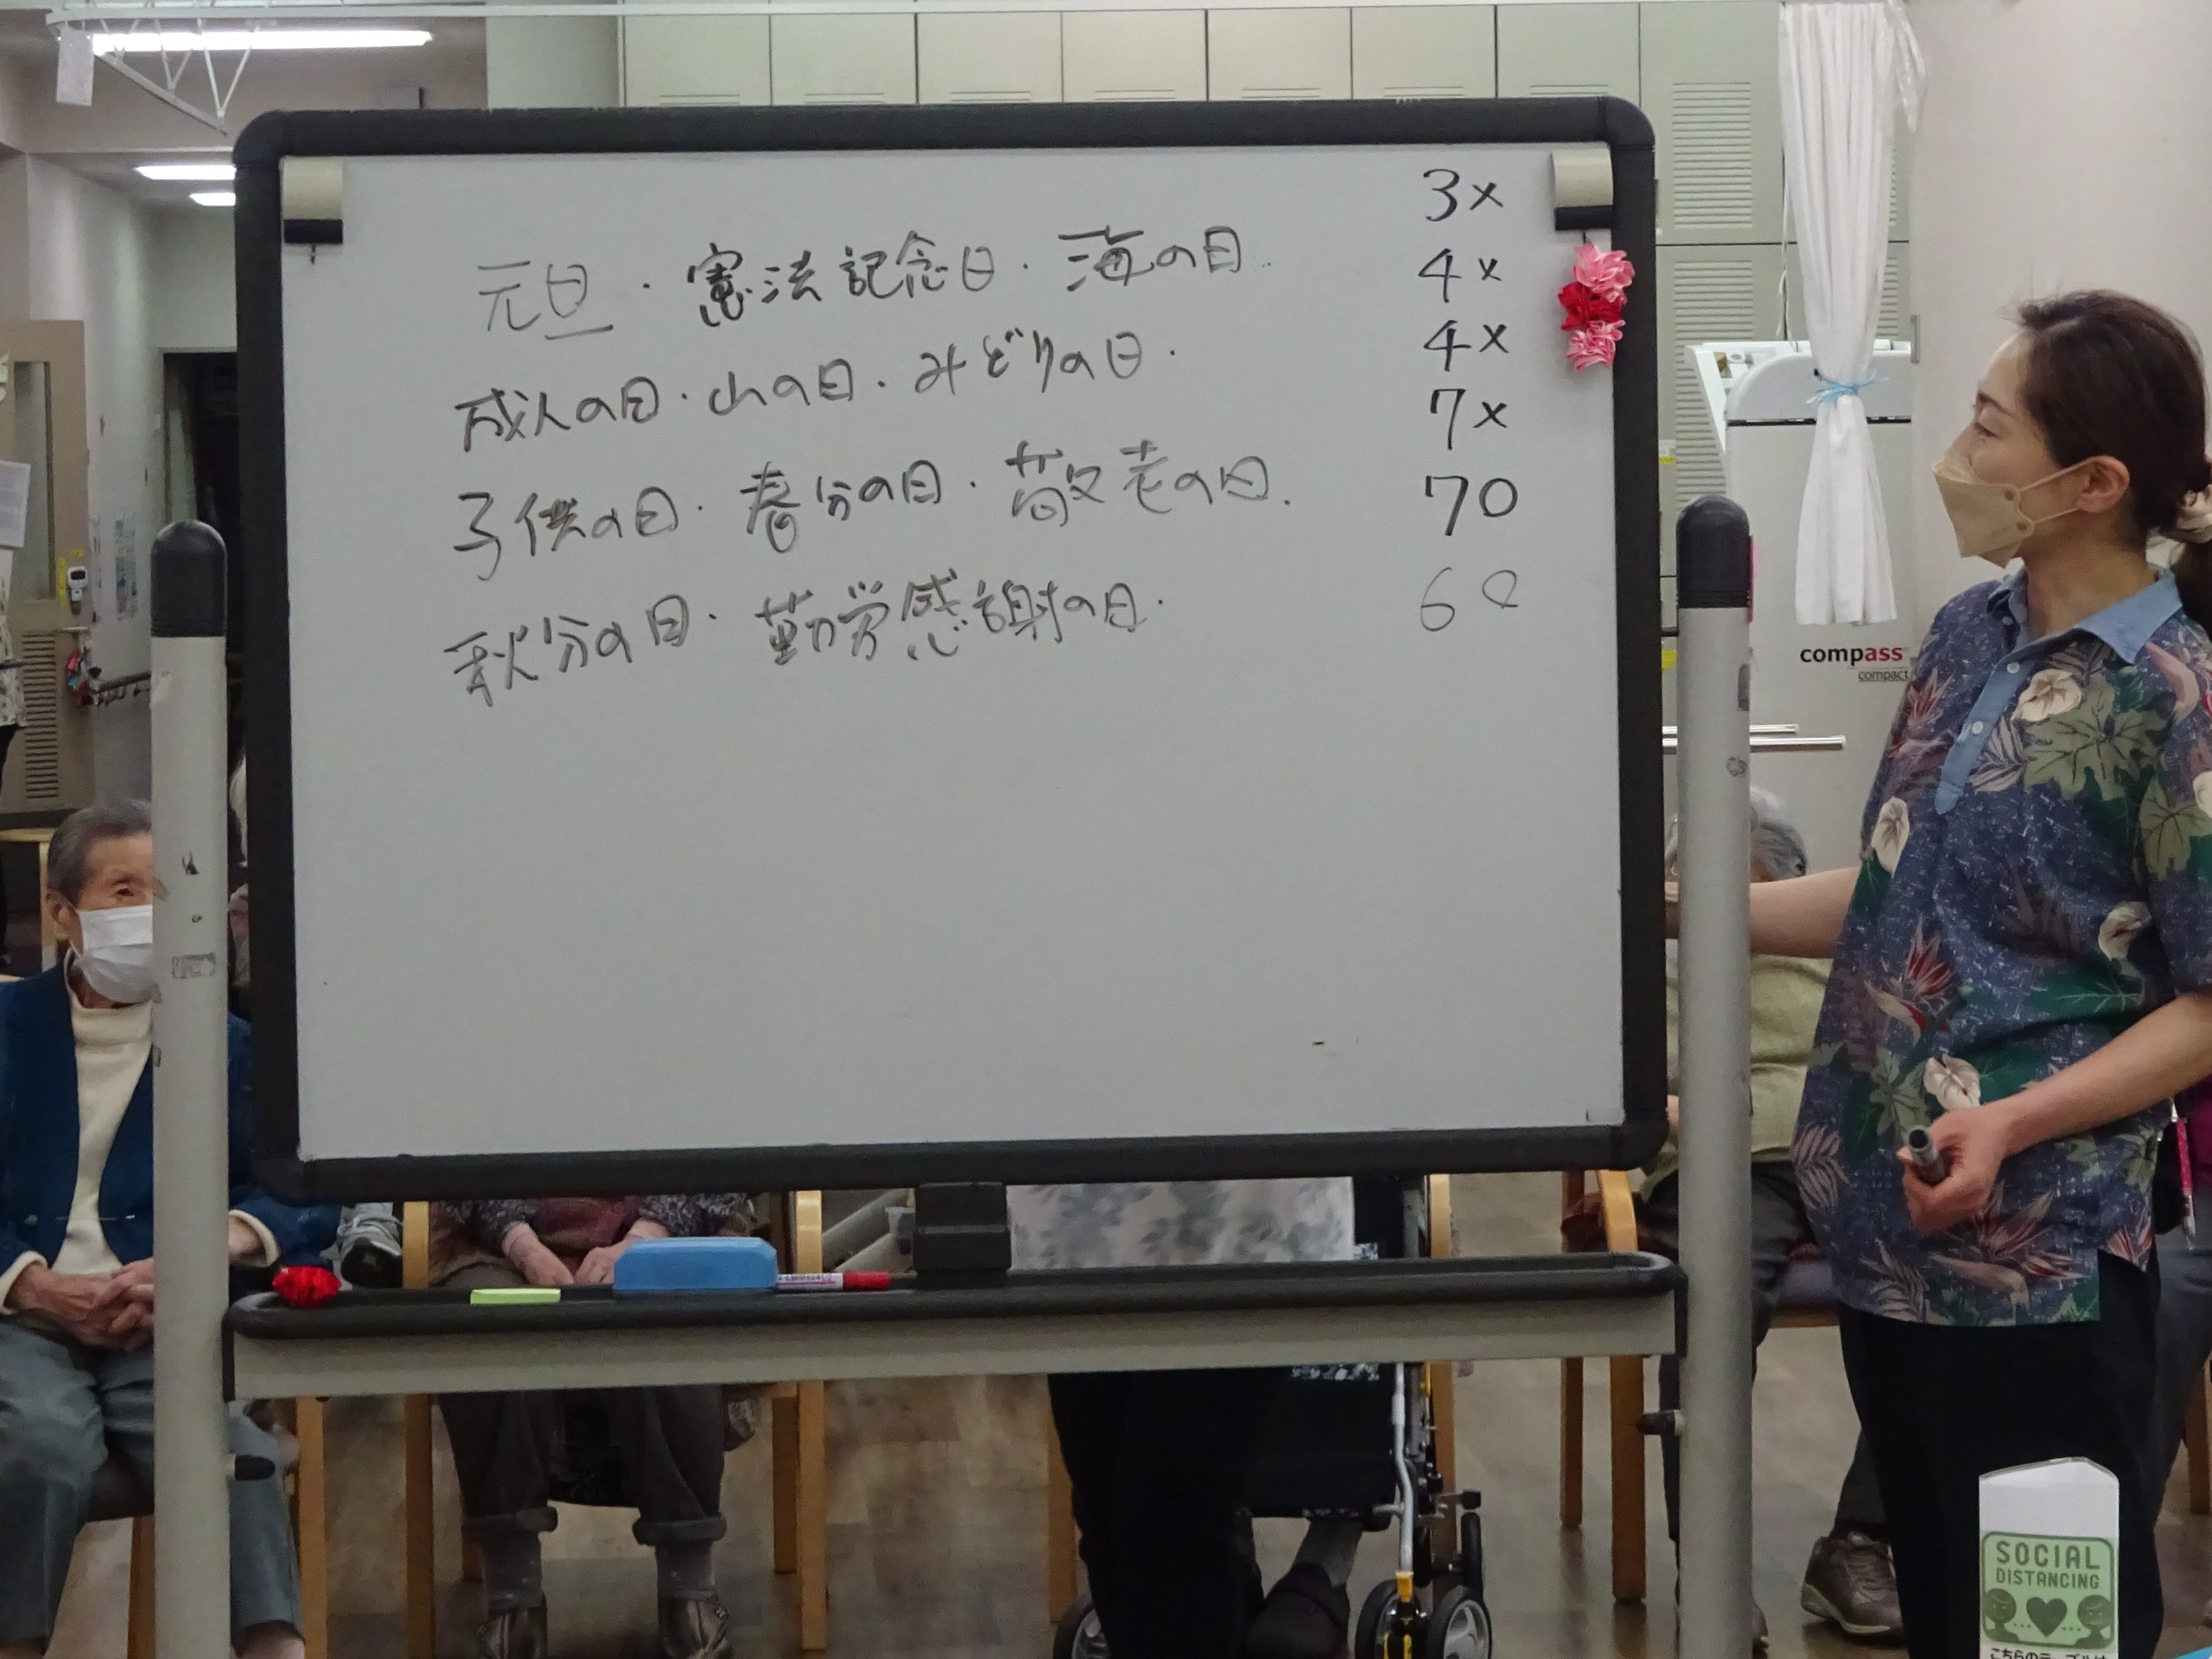 元旦・憲法記念日・海の日
成人の日・山の日・みどりの日・
子供の日・春分の日・敬老の日.
秋分の日・勤労感謝の日・
3×
4×
4×
7×
70
60
compass
compact
SOCIAL
DISTANCING